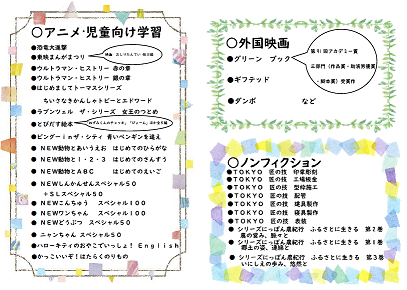 ○アニメ・児童向け学習
●恐竜大進撃
●東映まんがまつり
●ウルトラマン・ヒストリー 赤の章
●ウルトラマン・ヒストリー 銀の章
●はじめましてトーマスシリーズ
ちいさなきかんしゃトビーとエドワード
●ラプンツェル ザ・シリーズ 女王のつとめ
●とびだす絵本
●ピングー in ザ・シティ 青いペンギンを追え
● NEW動物とあいうえお はじめてのひらがな
● NEW動物と1・2・3 はじめてのさんすう
● NEW動物とABC はじめてのえいご
● NEWしんかんせんスペシャル50
+SLスペシャル50
● NEWこんちゅう スペシャル100
● NEWワンちゃん スペシャル100
● NEWどうぶつ スペシャル50
● ニャンちゃん スペシャル50
●ハローキティのおやこでいっしょ! English
●かっこいいぞ!はたらくのりもの
○外国映画
●グリーン ブック
第91回アカデミー賞
三部門(作品賞・助演男優賞
・脚本賞)受賞作
●ギフテッド
●ダンボ など
○ノンフィクション
●TOKYO 匠の技 印章彫刻
●TOKYO 匠の技 工場板金
●TOKYO 匠の技 型枠施工
●TOKYO 匠の技 配管
●TOKYO 匠の技 建具製作
●TOKYO 匠の技 寝具製作
●TOKYO 匠の技 表装
● シリーズにっぽん農紀行 ふるさとに生きる 第2巻
● シリーズにっぽん農紀行 ふるさとに生きる 第1巻
郷土の姿、連綿と
● シリーズにっぽん農紀行 ふるさとに生きる 第3巻
いにしえの歩み、悠然と